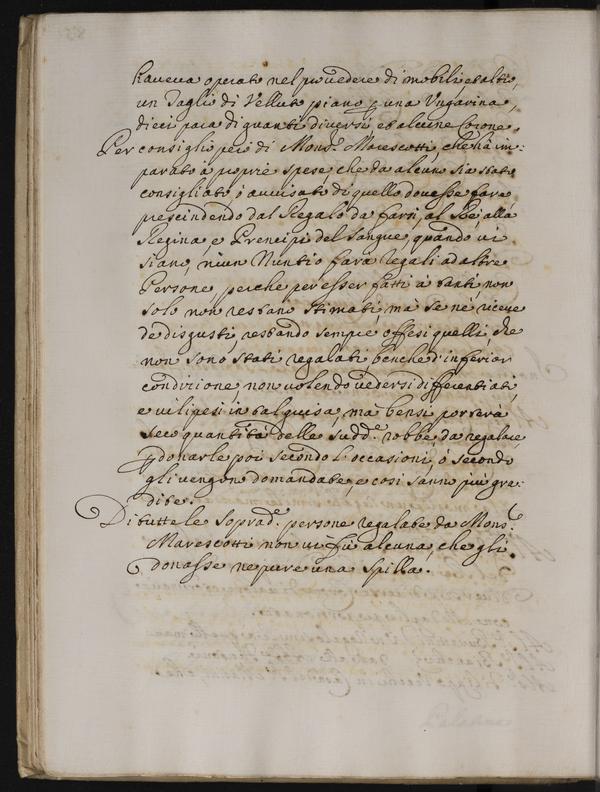 haueua operato nel prouedere di mobili, et altri,
un Taglio di Velluto piano p una Vngarina,
dieci paia di guanti diuersi, et alcune Corone.
Per consiglio però di Mons.r Marescotti, che hà im:
parato à proprie spese, che da alcuno sia stato
consigliato, ò auuisato di quello douesse fare
prescindendo dal Regalo da farsi, al Rè, alla
Regina e Prencipi del Sangue, quando ui
siano, niun Nuntio farà regali ad altre
Persone, perche per esser fatti à tanti, non
solo non restano stimati, mà se nè riceue
de disgusti, restando sempre offesi quelli, che
non sono stati regalati, benche d'inferior
condizione, non uolendo uedersi differentiati,
e uilipesi in tal guisa, mà bensi porterà
seco quantità delle sudd.e robbe da regalare,
p donarle poi secondo l'occasioni, ò secondo
gli uengon domandate, e cosi sanno più gra:
dite.
Di tutte le soprad.e persone regalate da Mons.r
Marescotti non ui fù alcuna che gli
donasse ne pure una spilla.